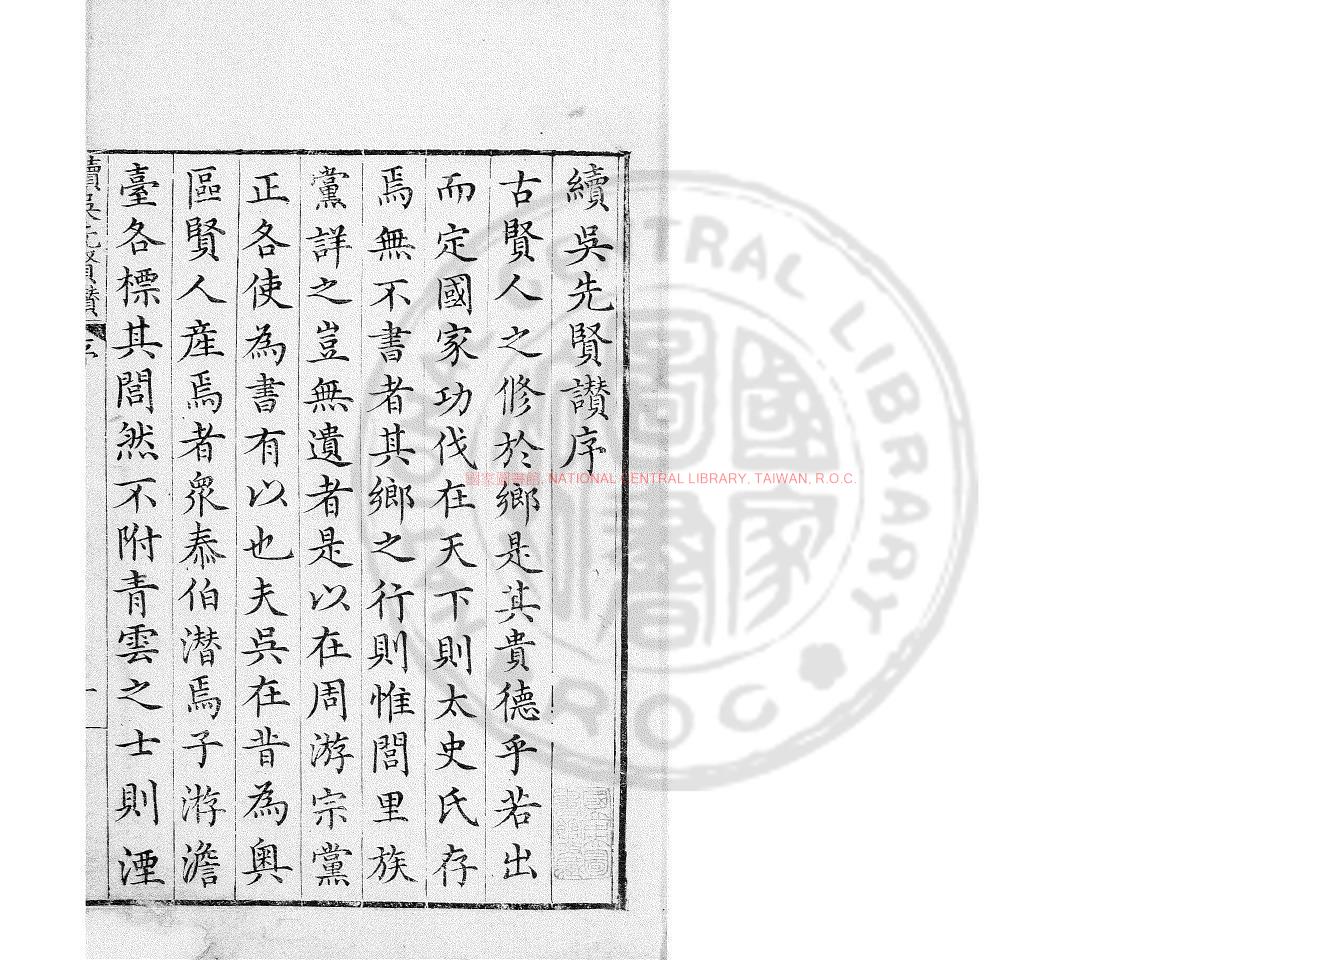 續吳先賢讃序
古賢人之修於鄉是其貴德乎若出
而定國家功伐在天下則太史氏存
焉無不書者其鄉之行則惟閭里族
黨詳之豈無遺者是以在周游宗黨
正各使為書有以也夫吳在昔為奧
區賢人産焉者衆泰伯潜焉子游澹
臺各標其閭然不附青雲之士則湮
續吳先賢讃
序
一
國家圖書館, NATIONAL CENTRAL LIBRARY, TAIWAN, R.O.C.
NATIONAL CENTRAL LIBRARY
R.O.C.
國家圖書